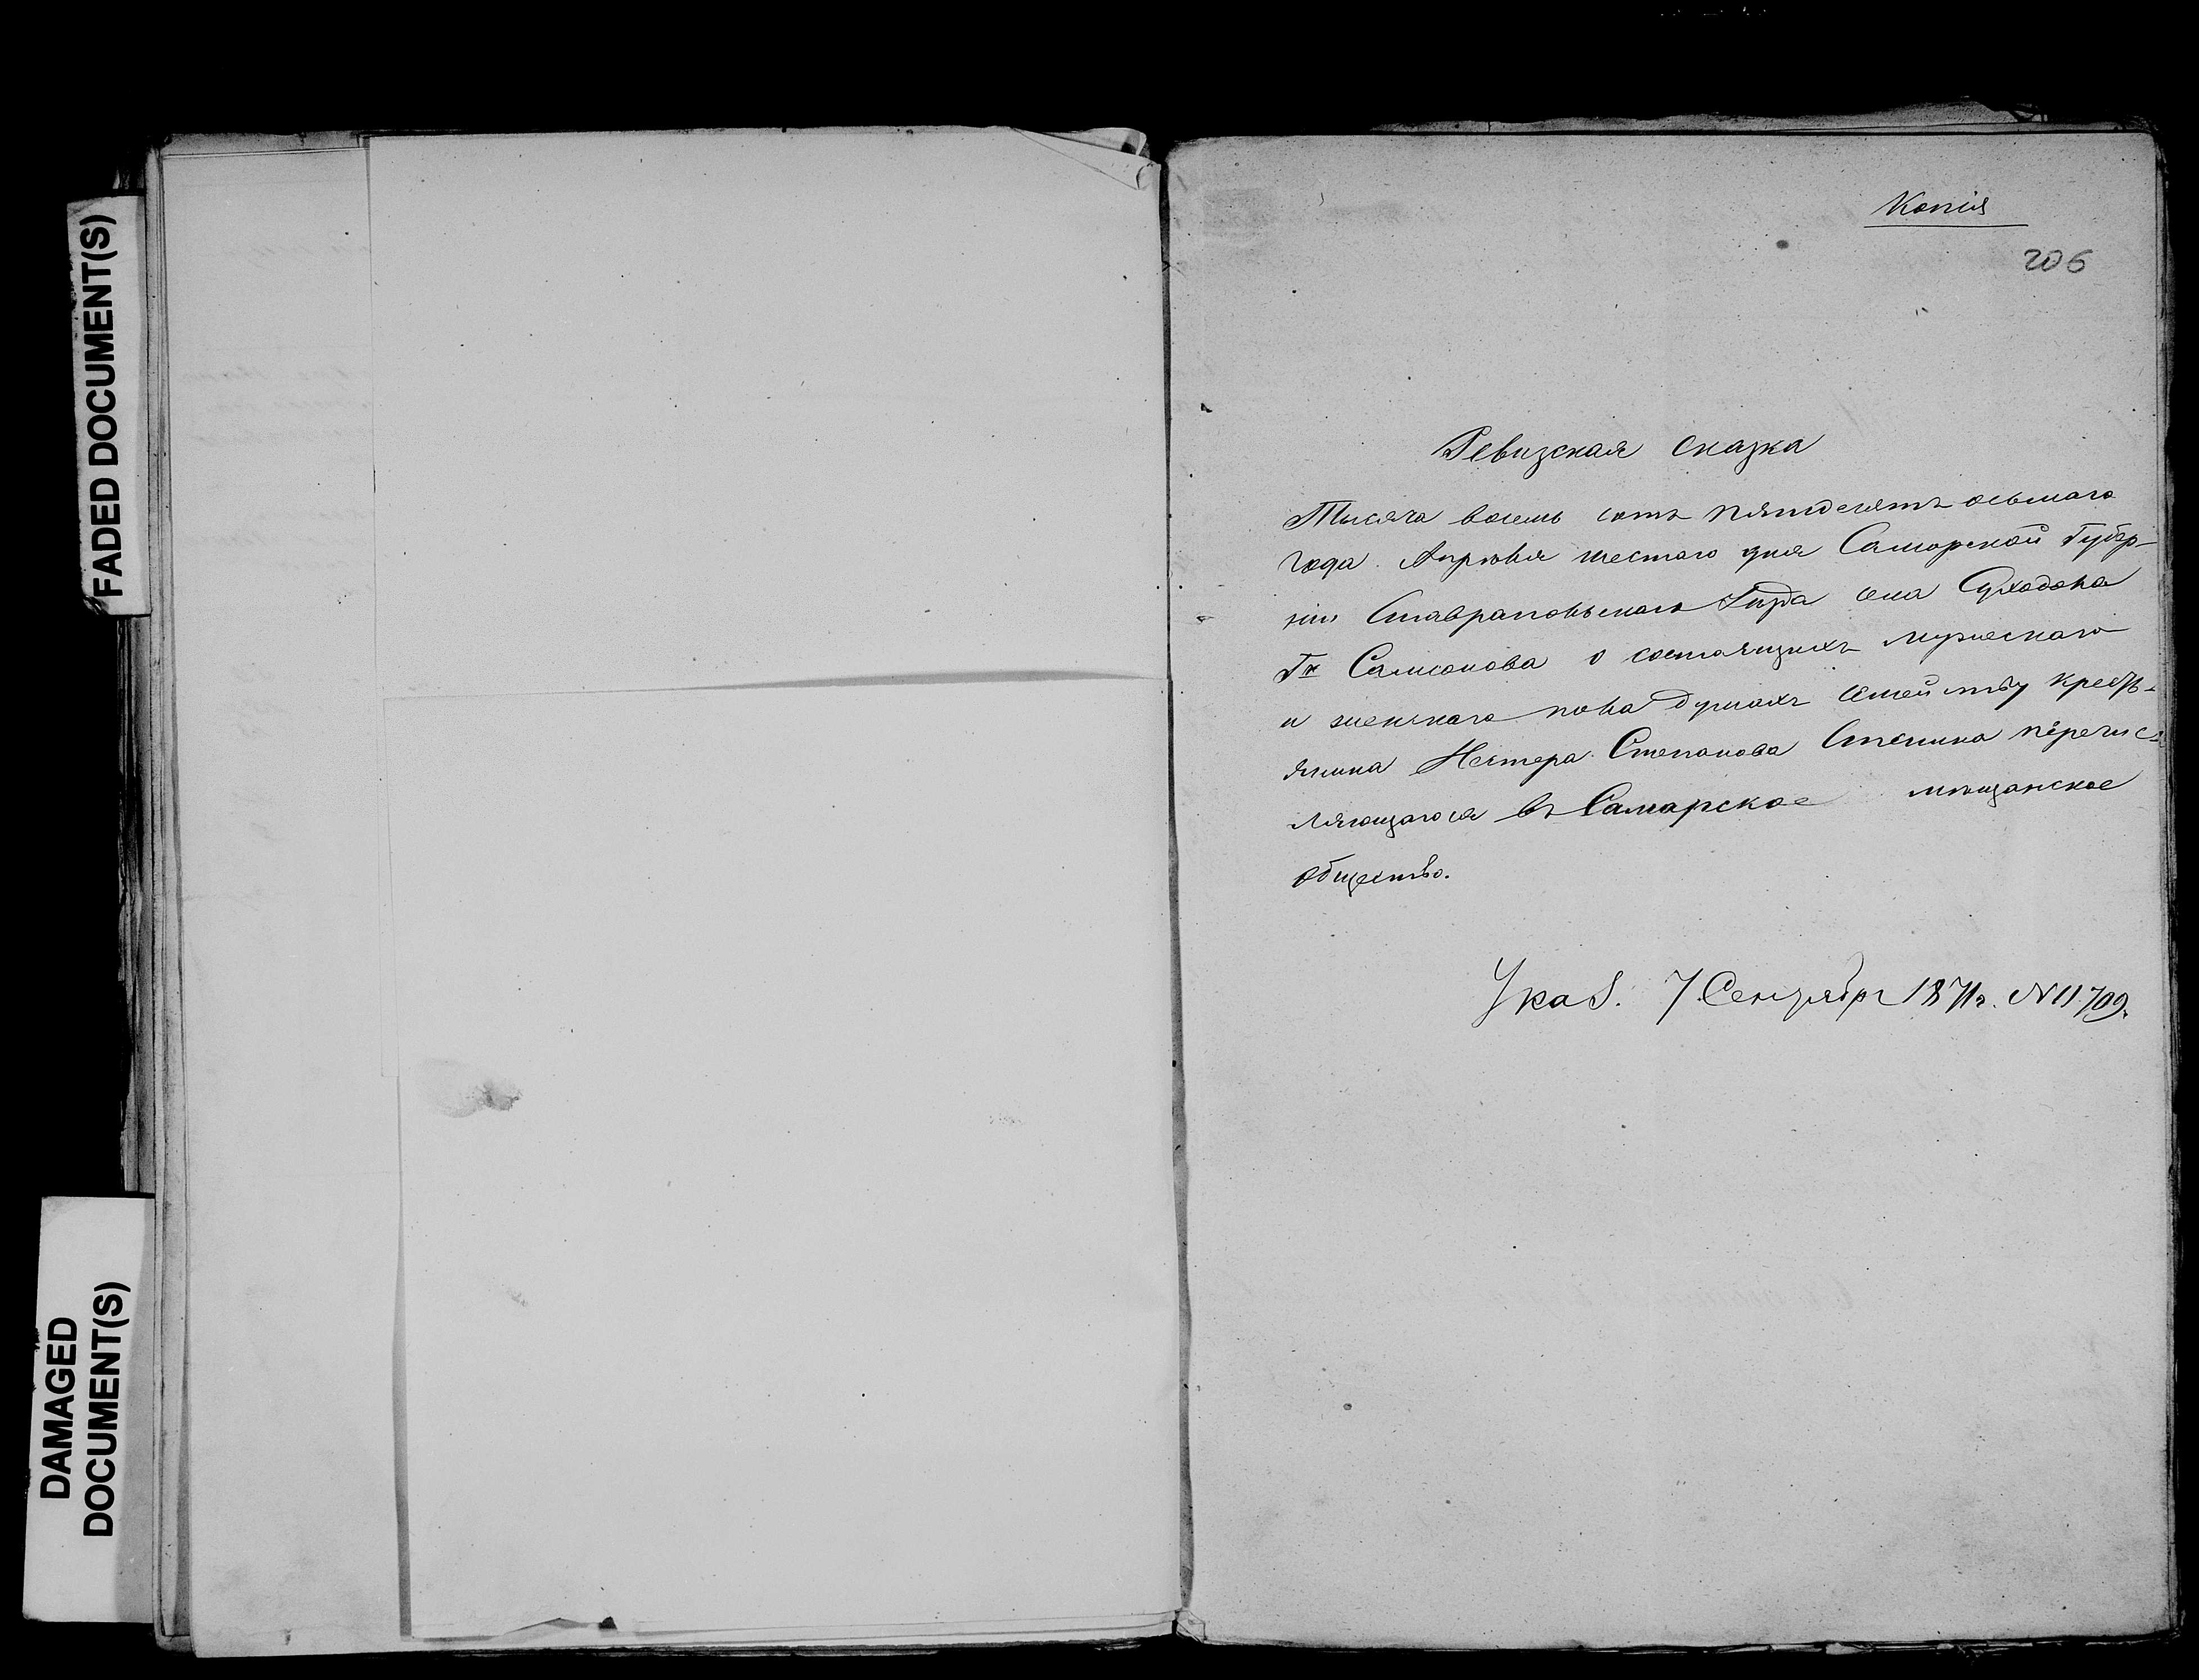 FADED DOCUMENT(S)
DAMAGED
DOCUMENT(S)
Копія
206
Ревизская сказка
Тысяча восемь сотъ пятидесятъ осьмаго
года Апрѣля шестаго дня Саморской Губер-
ніи Ставрапольскаго уѣзда села Суходола
Гн Самсонова о состоящихъ мужескаго
и женскаго пола душахъ семейству кресть-
янина Нестера Степанова перечис-
ляющагося въ Самарское мѣщанское
общество.
Указ. 7 Сентября 1871г. N 11709.